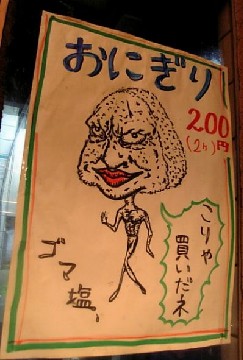 おにぎり
200円
(2ヶ)
こりゃ
買いだネ
ゴマ塩、